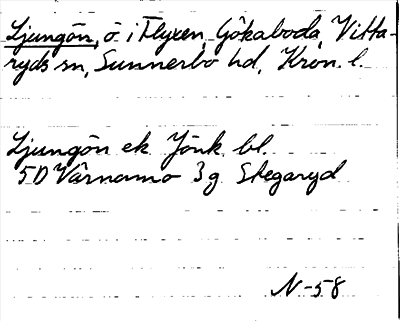 Ljungön, ö i Flyxen, Gökaboda, Vitta-
ryds sn, Sunnerbo hd, Kron. l.
Ljungön ek Jönk. bl.
5D Värnamo 3g Stegaryd
N-58